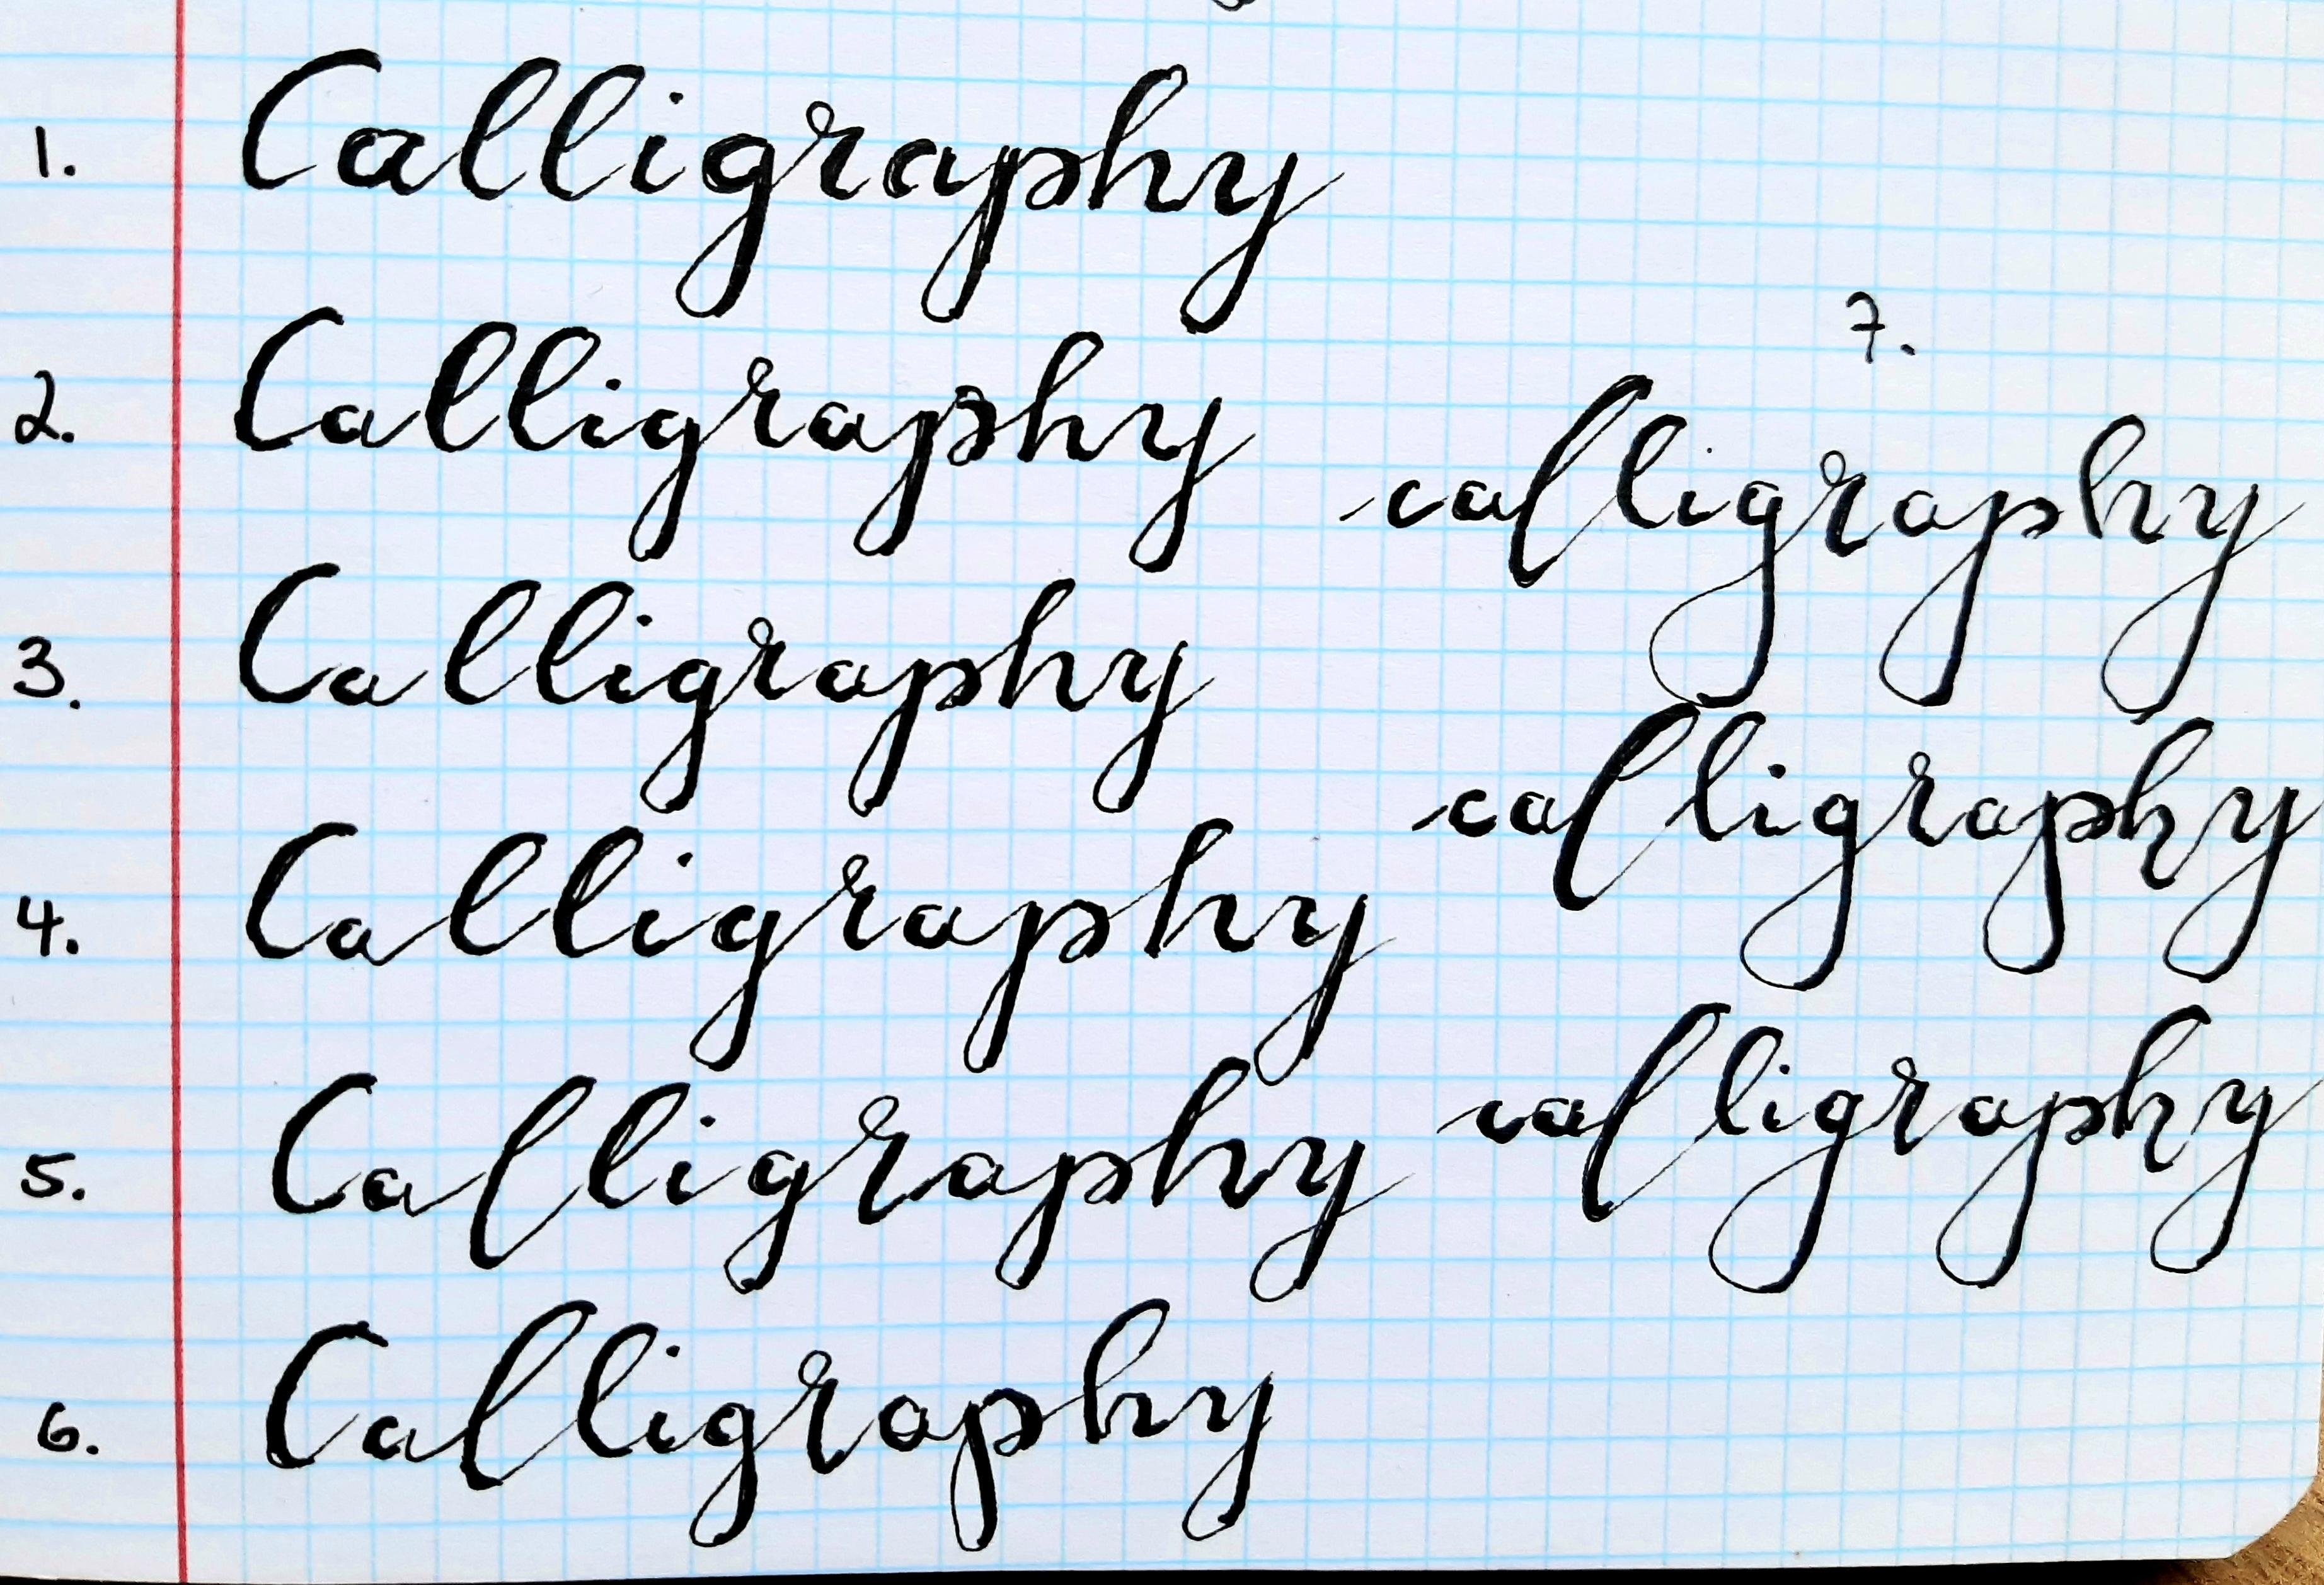 1. Calligraphy
2. Calligraphy
3. Calligraphy
4. Calligraphy
5. Calligraphy
6. Calligraphy
7.
calligraphy
calligraphy
calligraphy